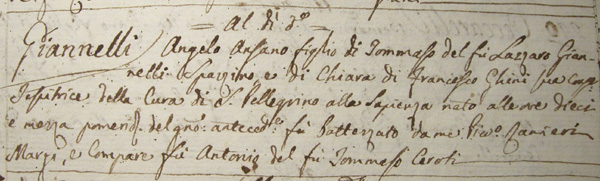 Al dì d.º
Giannelli Angelo Ansano figlio di Tommaso del fù Lazzaro Gian-
nelli Spazzino e di Chiara di Francesco Ghini sue Cong.
della Cura di S. Pellegrino alla Sapienza nato alle ore dieci
e mezza pomerid. del gno: anteced.e fù Battezzato da me Ranieri
e Compare fù Antonio del fù Tommaso Ceroti